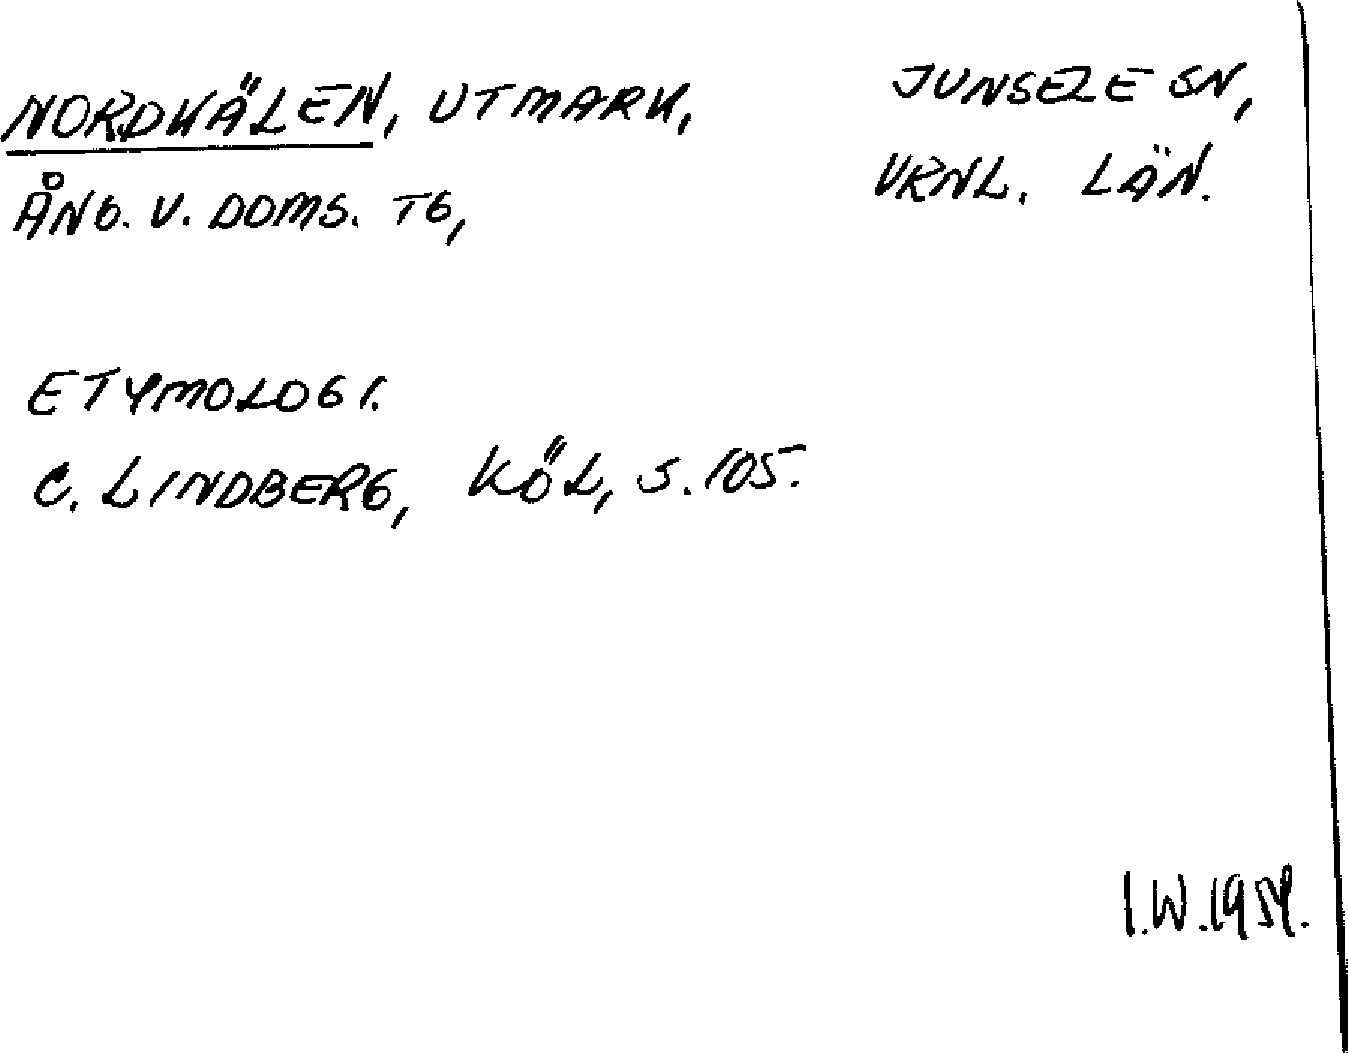 NORDKÄLEN, UTMARK,
JUNSELE SN,
ÅNG. V. DOMS. TG,
VRNL. LÄN.
ETYMOLOGI.
C. LINDBERG, KÖL, S. 105.
I.W. 1959.